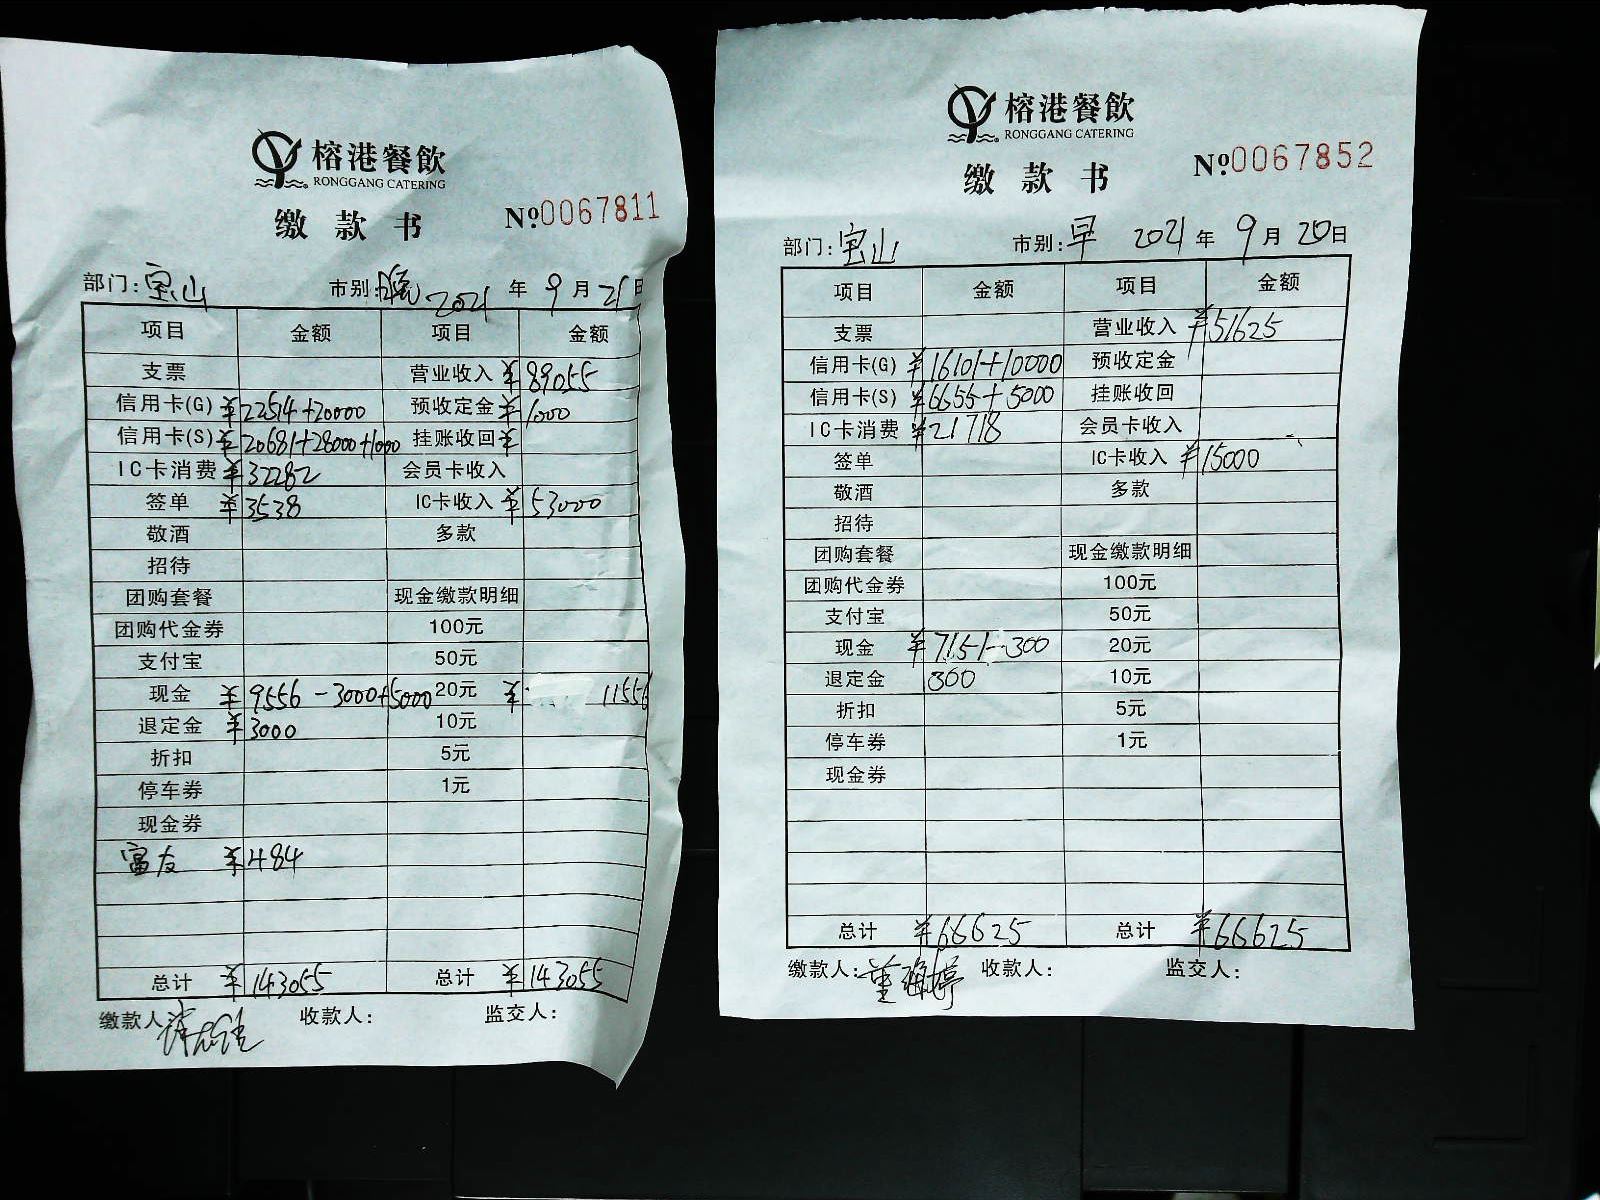 榕港餐飲
RONGGANG CATERING
缴款书 №0067811
部门:宝山 市别:晚 2021 年 9 月 21 日
项目 金额 项目 金额
支票 营业收入 ¥89055
信用卡(G) ¥22514+20000 预收定金 ¥1000
信用卡(S) ¥20681+28000+1000 挂账收回 ¥
IC卡消费 ¥32282 会员卡收入
签单 ¥3538 IC卡收入 ¥53000
敬酒 多款
招待
团购套餐 现金缴款明细
团购代金券 100元
支付宝 50元
现金 ¥9556-3000+5000 20元 ¥ 11556
退定金 ¥3000 10元
折扣 5元
停车券 1元
现金券
富友 ¥484
总计 ¥143055 总计 ¥143055
缴款人: 收款人: 监交人:
榕港餐飲
RONGGANG CATERING
缴款书 №0067852
部门:宝山 市别:早 2021 年 9 月 20 日
项目 金额 项目 金额
支票 营业收入 ¥51625
信用卡(G) ¥16101+10000 预收定金
信用卡(S) ¥6655+5000 挂账收回
IC卡消费 ¥21718 会员卡收入
签单 IC卡收入 ¥15000
敬酒 多款
招待
团购套餐 现金缴款明细
团购代金券 100元
支付宝 50元
现金 ¥7151-300 20元
退定金 300 10元
折扣 5元
停车券 1元
现金券
总计 ¥66625 总计 ¥66625
缴款人: 董海婷 收款人: 监交人: